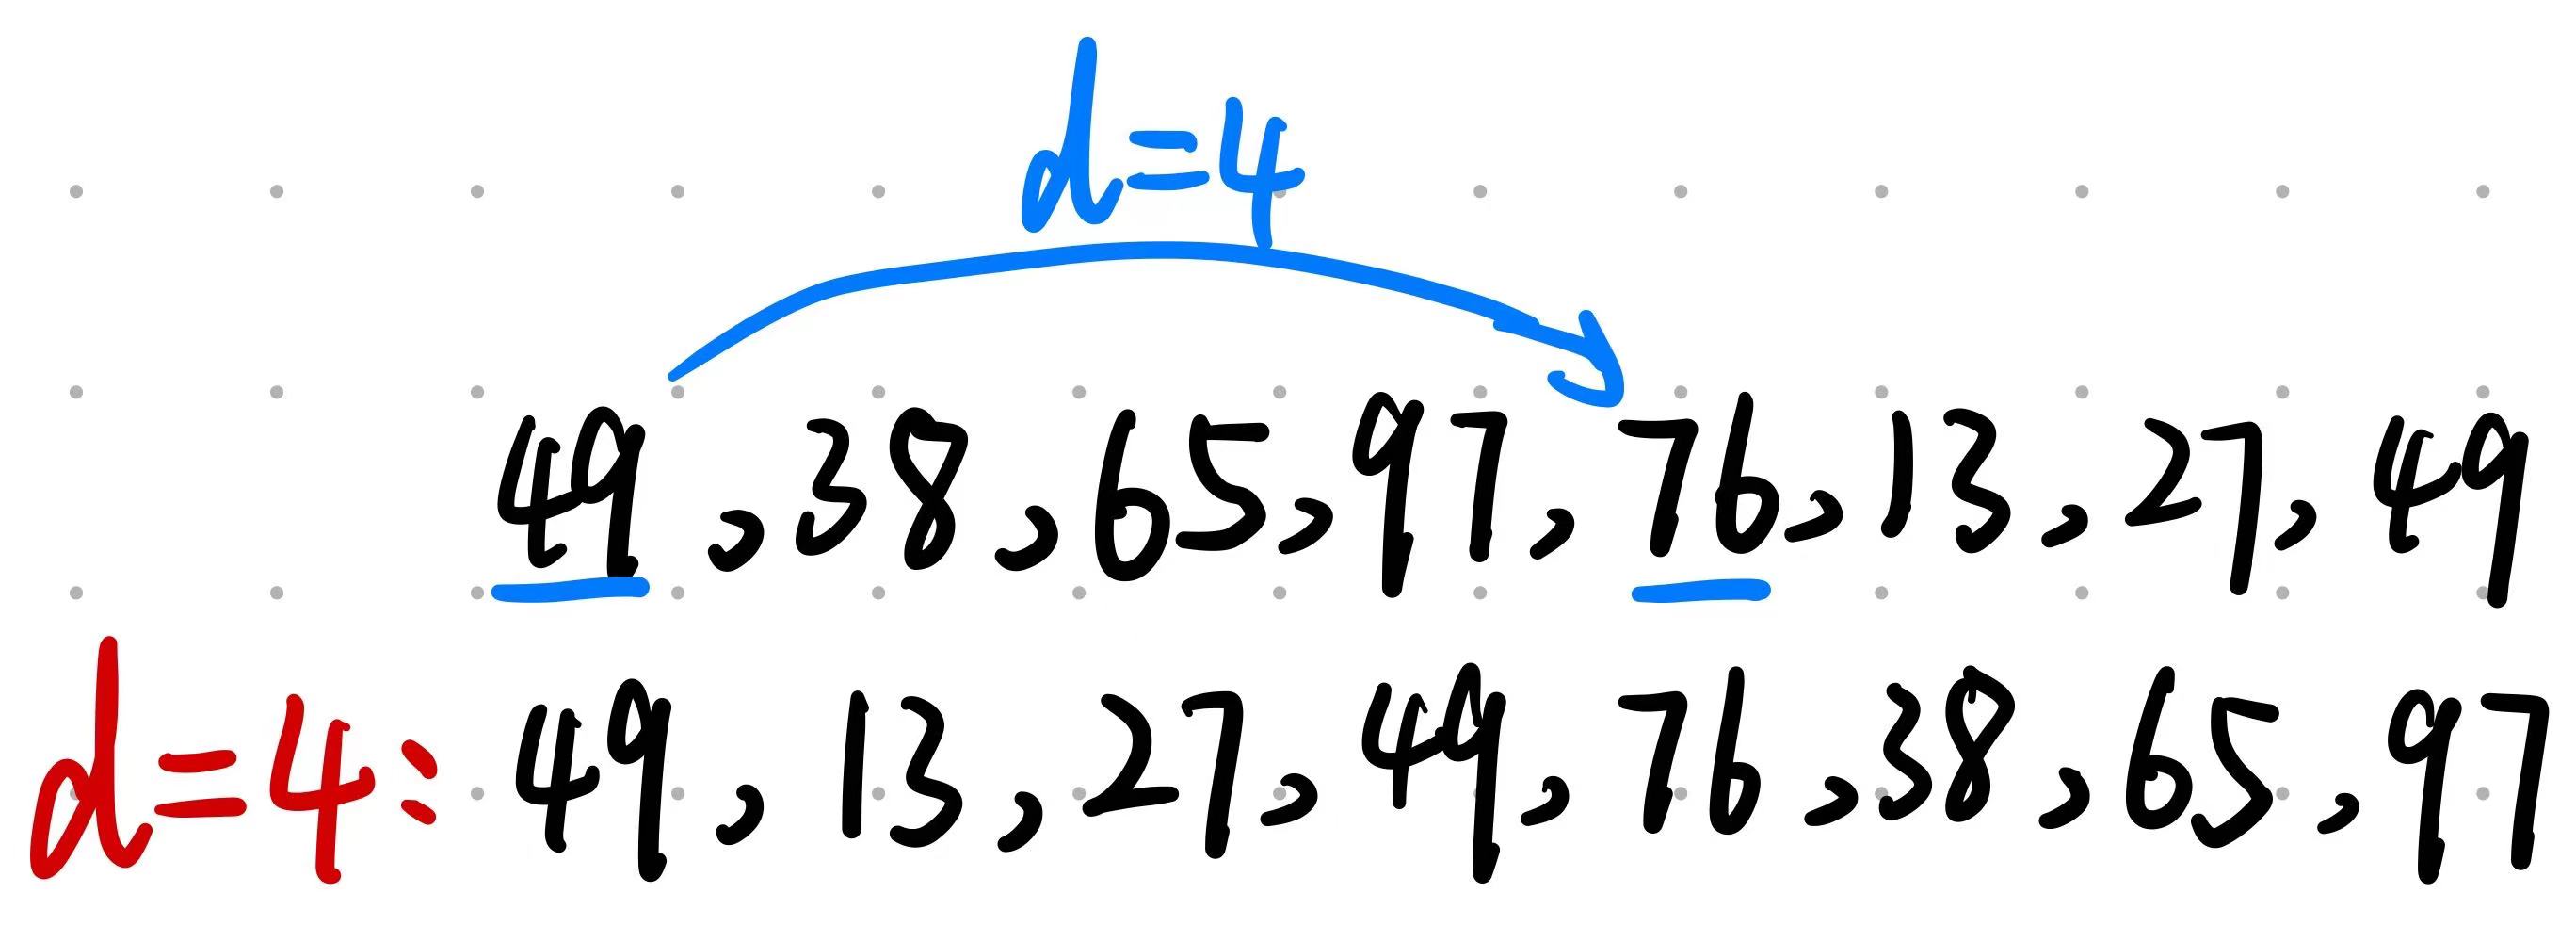 d=4
49,38,65,97,76,13,27,49
d=4: 49,13,27,49,76,38,65,97